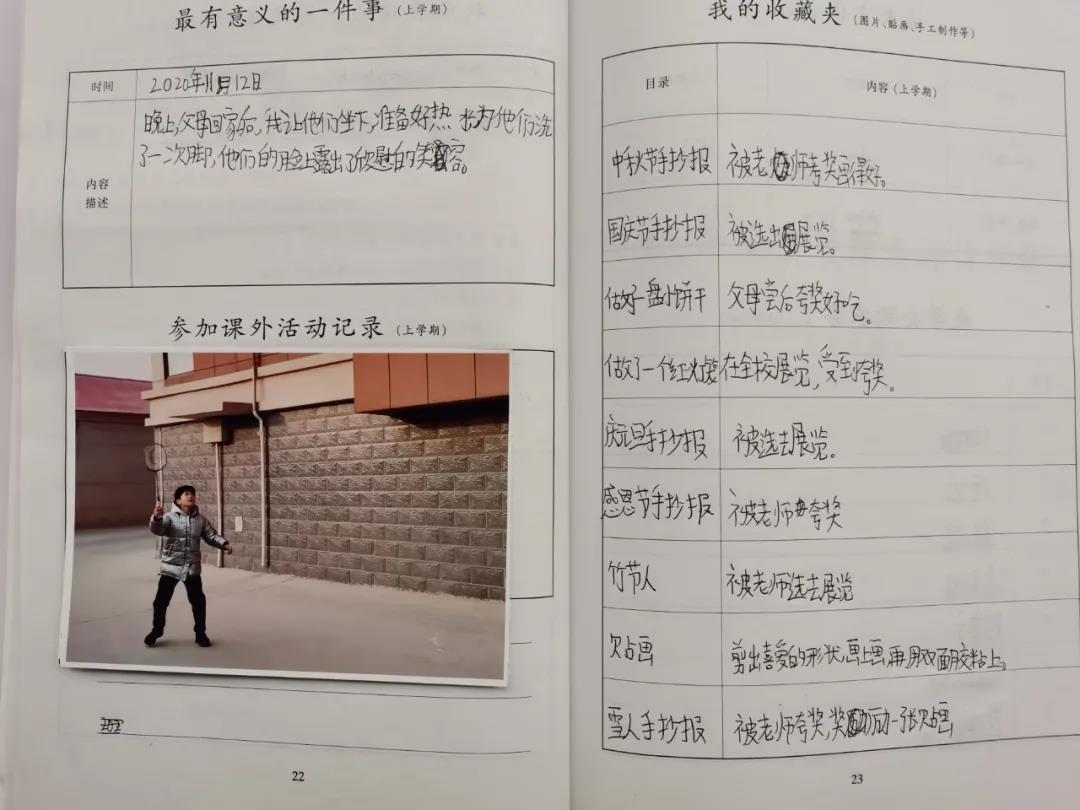 最有意义的一件事（上学期）
时间 2020年11月12日
内容描述
晚上，父母回家后，我让他们坐下，准备好热水为他们洗
了一次脚，他们的脸上露出了欣慰的笑容。
参加课外活动记录（上学期）
22
我的收藏夹（图片、贴画、手工制作等）
目录 内容（上学期）
中秋节手抄报 被老师夸奖画得好。
国庆节手抄报 被选出展览。
做好一盘小饼干 父母尝后夸奖好吃。
做了一个红灯笼 在全校展览，受到夸奖。
庆元旦手抄报 被选去展览。
感恩节手抄报 被老师夸奖
竹节人 被老师选去展览
贝占画 剪出喜爱的形状画上画，再用双面胶粘上。
雪人手抄报 被老师夸奖，奖励一张贝占画
23